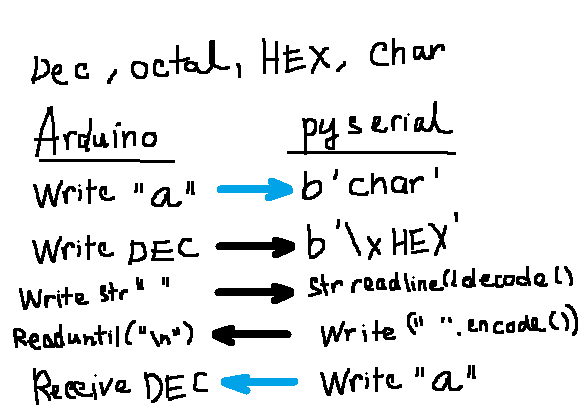 Dec, octal, HEX, Char
Arduino pyserial
Write "a" b'char'
Write DEC b'\xHEX'
Write str" " Str readline().decode()
Readuntil("\n") Write (" ".encode())
Receive DEC Write "a"